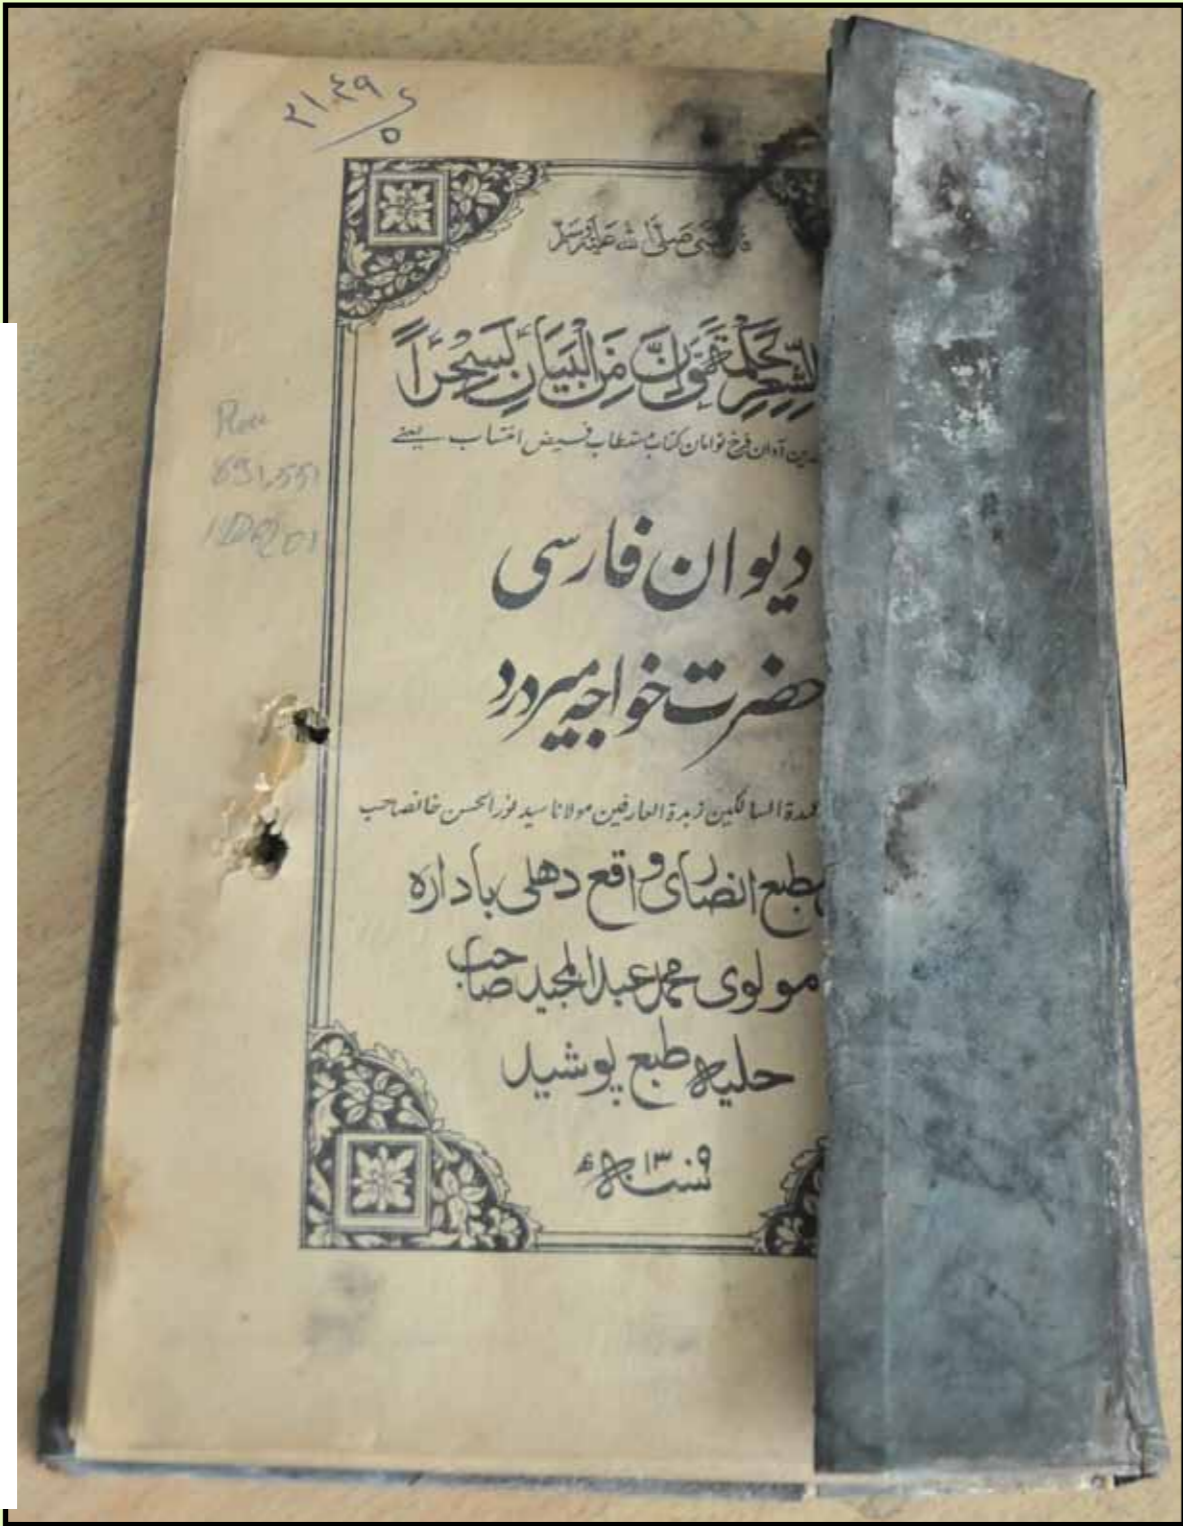 ۲۱۰۴۹
۵
صلی الله علیه وسلم
الشِّعْرِ لَحِكْمَةً وَّاِنَّ مِنَ الْبَيَانِ لَسِحْرًا
آوان فرخ توامان کتاب مستطاب فیض انتساب یعنے
دیوان فارسی
حضرت خواجہ میر درد
السالکین زبدة العارفین مولانا سید نور الحسن خانصاحب
مطبع انصاری واقع دهلی باداره
مولوی محمد عبدالمجید صاحب
حلیه طبع پوشید
سنه ۱۳۰۹ ھ